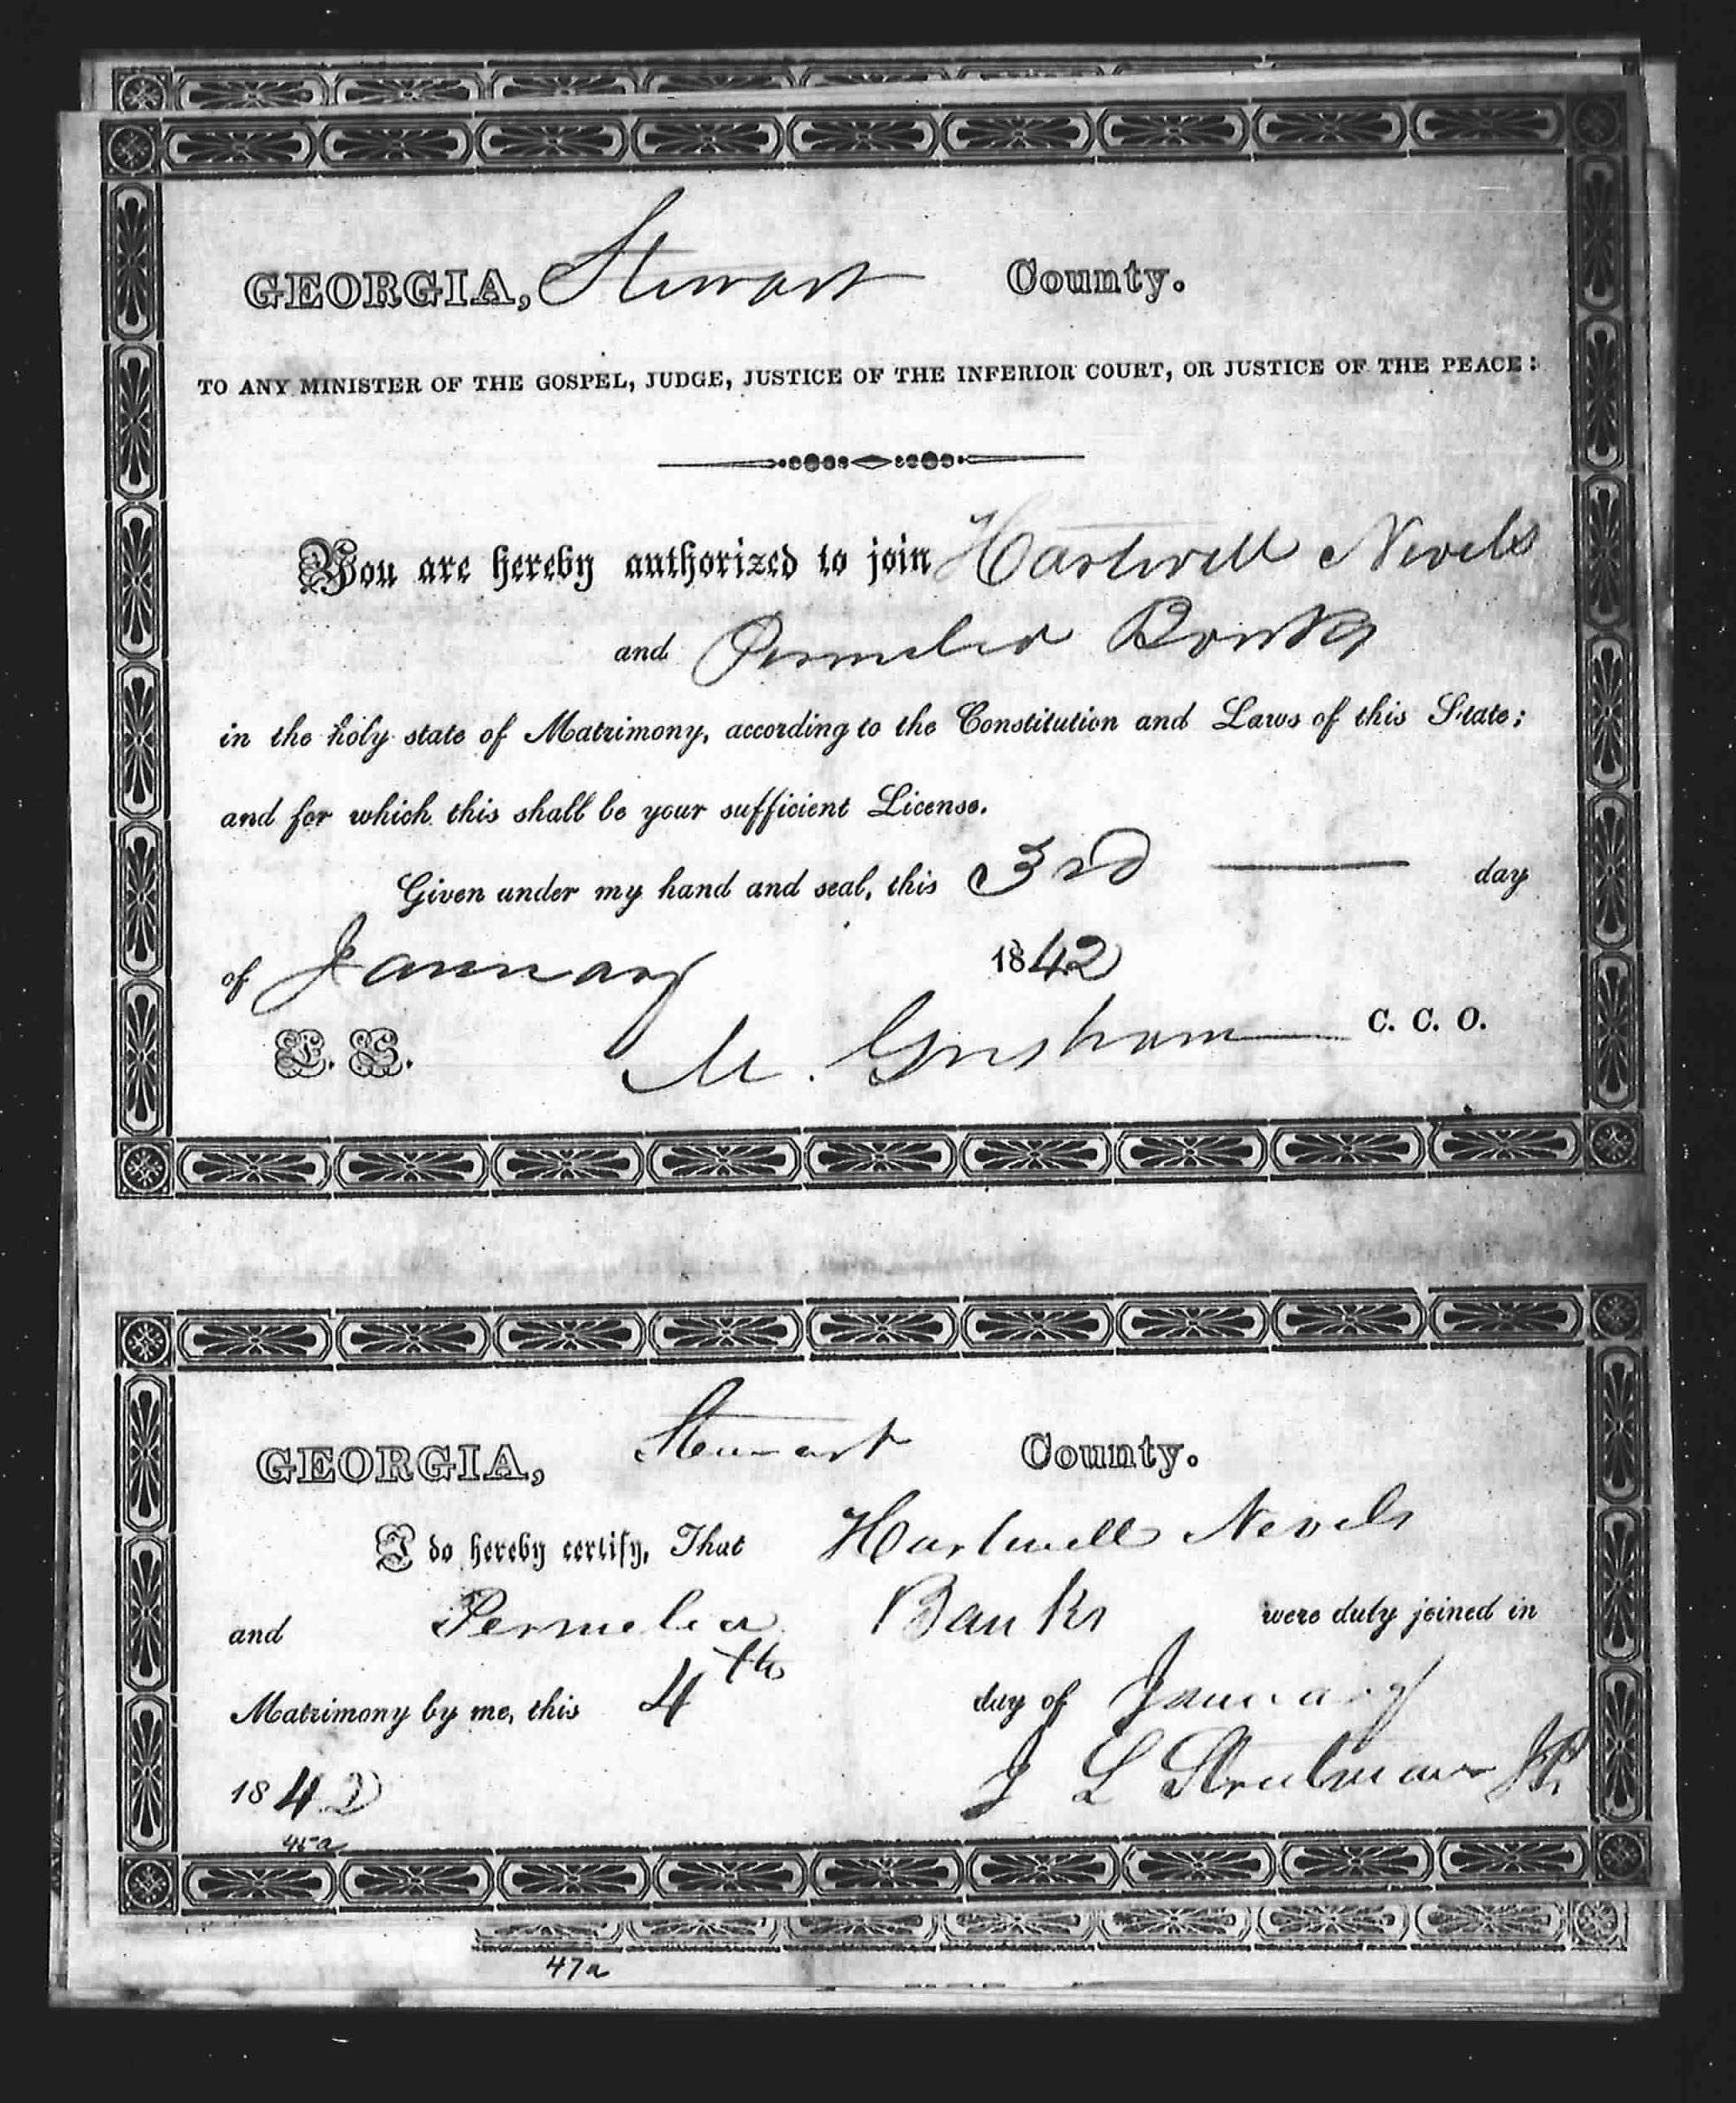 GEORGIA, Stewart County.
TO ANY MINISTER OF THE GOSPEL, JUDGE, JUSTICE OF THE INFERIOR COURT, OR JUSTICE OF THE PEACE:
You are hereby authorized to join Hartwell Nevels
and Permelia Banks
in the holy state of Matrimony, according to the Constitution and Laws of this State;
and for which this shall be your sufficient License.
Given under my hand and seal, this 3rd day
of January 1842
L. S. M. Gresham C. C. O.
GEORGIA, Stewart County.
I do hereby certify, That Hartwell Nevels
and Permelia Banks were duly joined in
Matrimony by me, this 4th day of January
1842 J L JP.
45a
47a